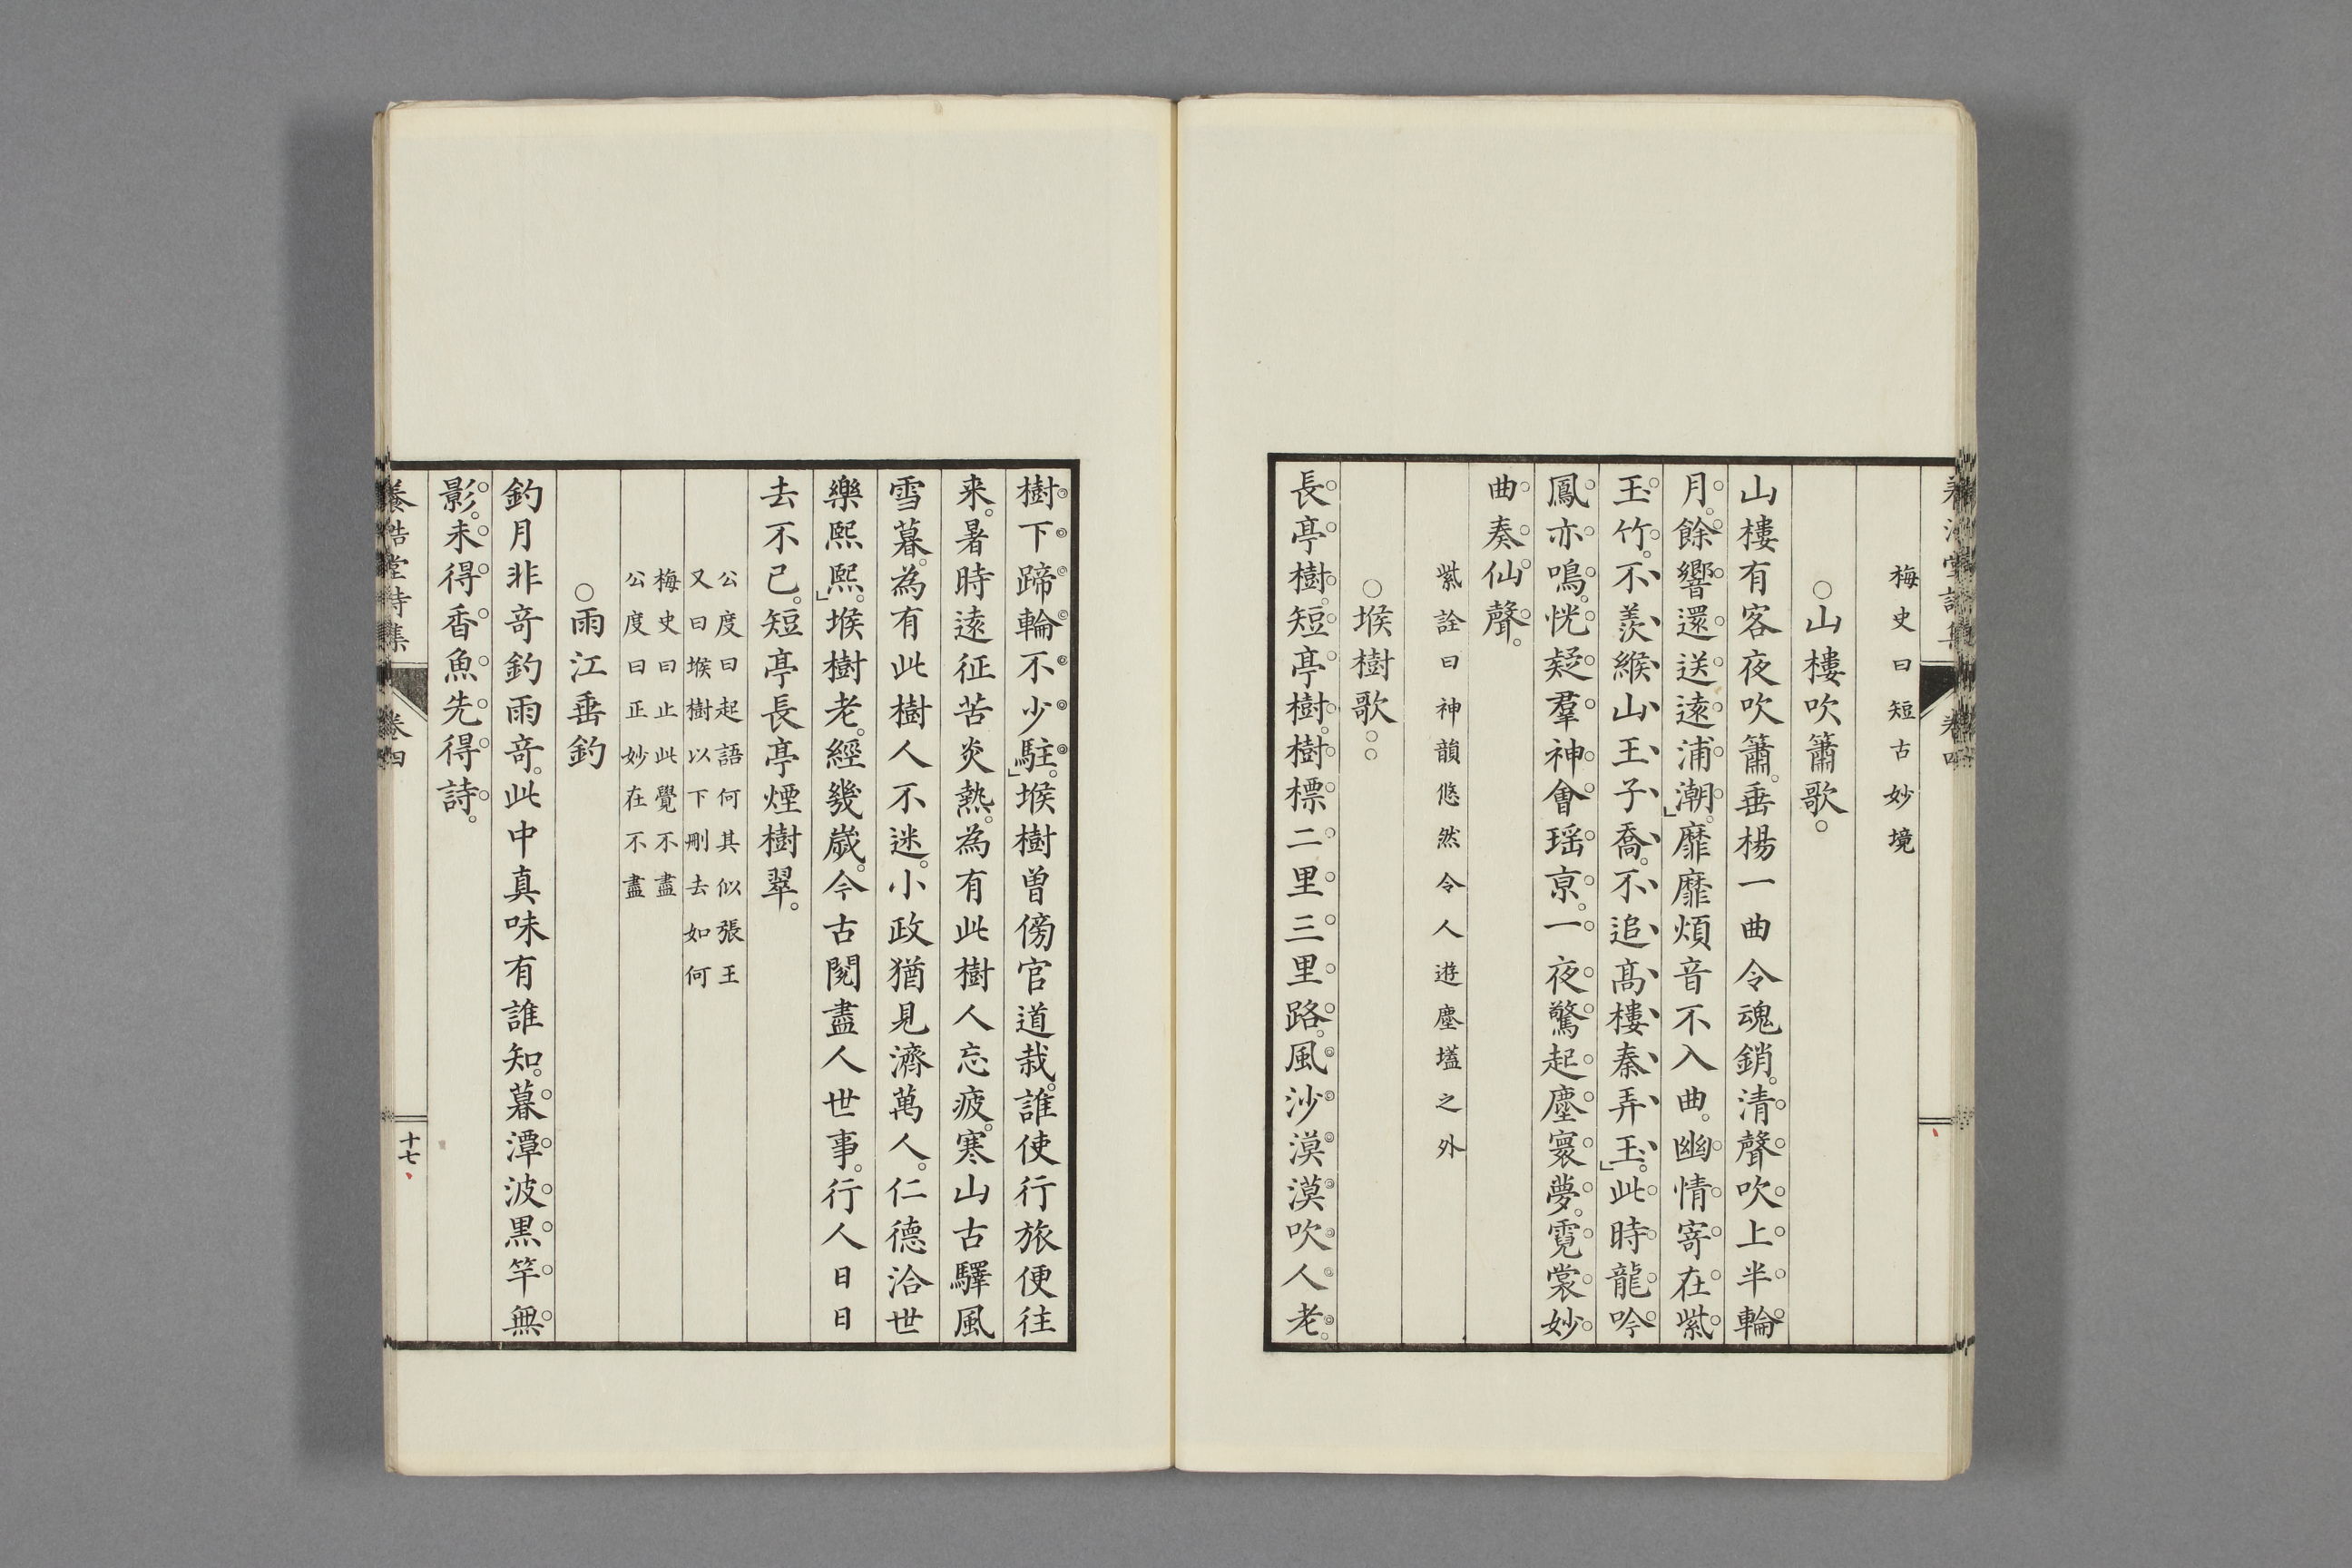 梅史曰短古妙境
○山樓吹簫歌。
山樓有客夜吹簫。垂楊一曲令魂銷。清聲吹上半輪
月。餘響還送遠浦潮。」靡靡煩音不入曲。幽情寄在紫
玉竹。不羨緱山王子喬。不追高樓秦弄玉。」此時龍吟
鳳亦鳴。恍疑羣神會瑶京。一夜驚起塵寰夢。霓裳妙
曲奏仙聲。
紫詮曰神韻悠然令人遊塵壒之外
○堠樹歌○○
長亭樹。短亭樹。樹標二里三里路。風沙漠漠吹人老。
樹下蹄輪不少駐。」堠樹曽傍官道栽。誰使行旅便往
来。暑時遠征苦炎熱。為有此樹人忘疲。寒山古驛風
雪暮。為有此樹人不迷。小政猶見濟萬人。仁德洽世
樂熙熙。」堠樹老。經幾歲。今古閱盡人世事。行人日日
去不已。短亭長亭煙樹翠。
公度曰起語何其似張王
又曰堠樹以下刪去如何
梅史曰止此覺不盡
公度曰正妙在不盡
○雨江垂釣
釣月非竒釣雨竒。此中真味有誰知。暮潭波黒竿無
影。未得香魚先得詩。
養浩堂詩集
卷四
十七